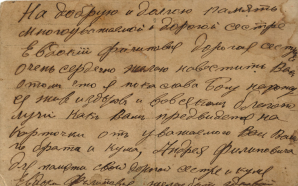 На добрую и долгою память
многоуважаемой и дорогой сестре
Евдокии Филиповне дорогая сестра
очень сердечно желаю известить Вам
о том что я пока слава Богу нахожу
ся жив и здоров и во всяком благопо
лучии как Вам предвидется на
карточки от уважаемого Вам Ваше
го брата и кума, Андрея Филиповича
для памяти своей дорогой сестре и куме